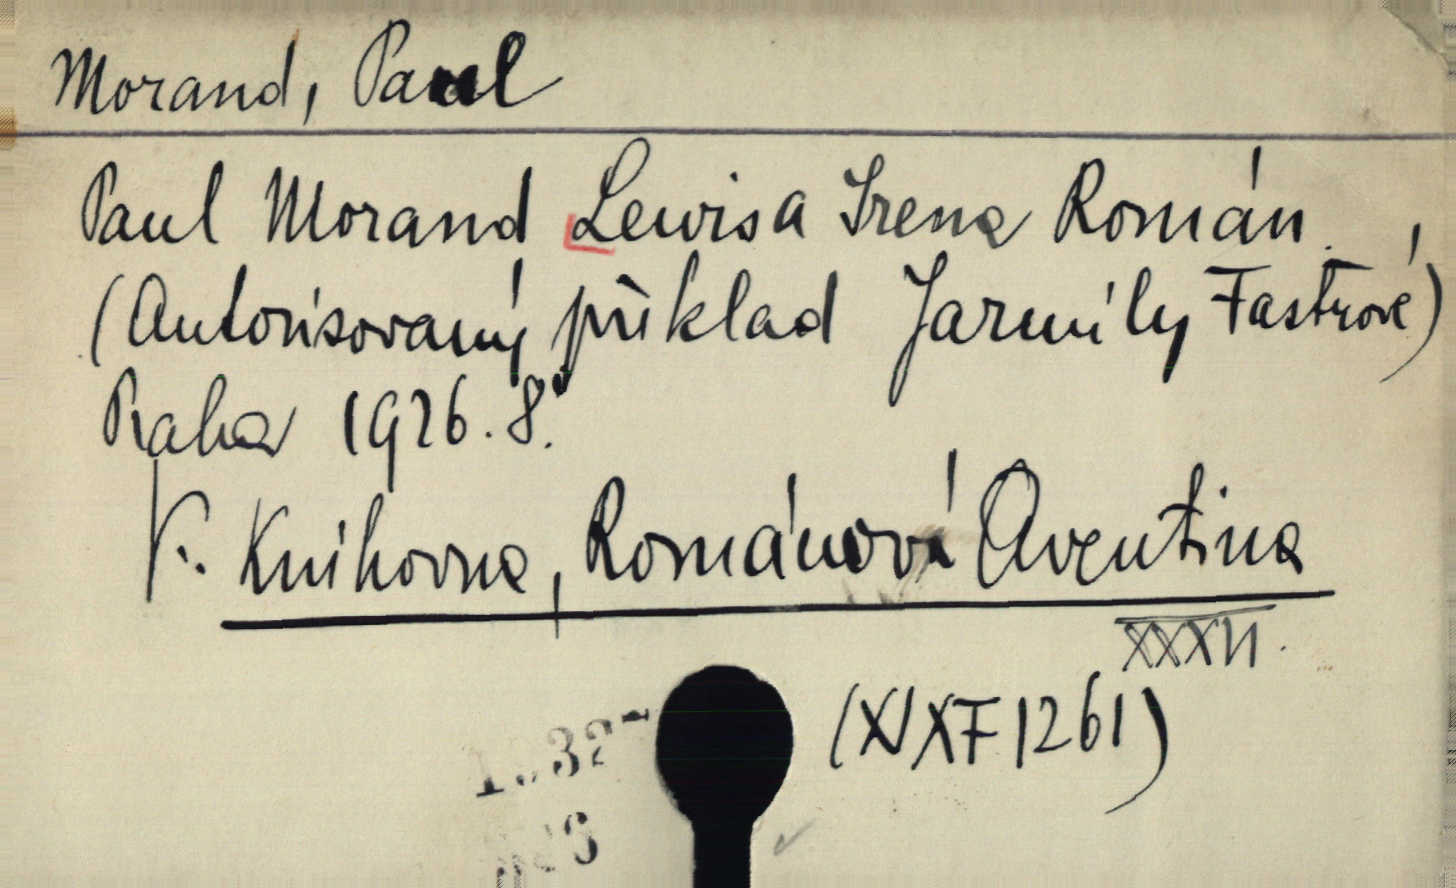 Morand, Paul
Paul Morand Lewis a Irena Román.
(Autorisovaný příklad Jarmily Fastrové)
Praha 1926. 8°.
V. Knihovna, Románová Aventina
XXXVI.
(XIXF1261)